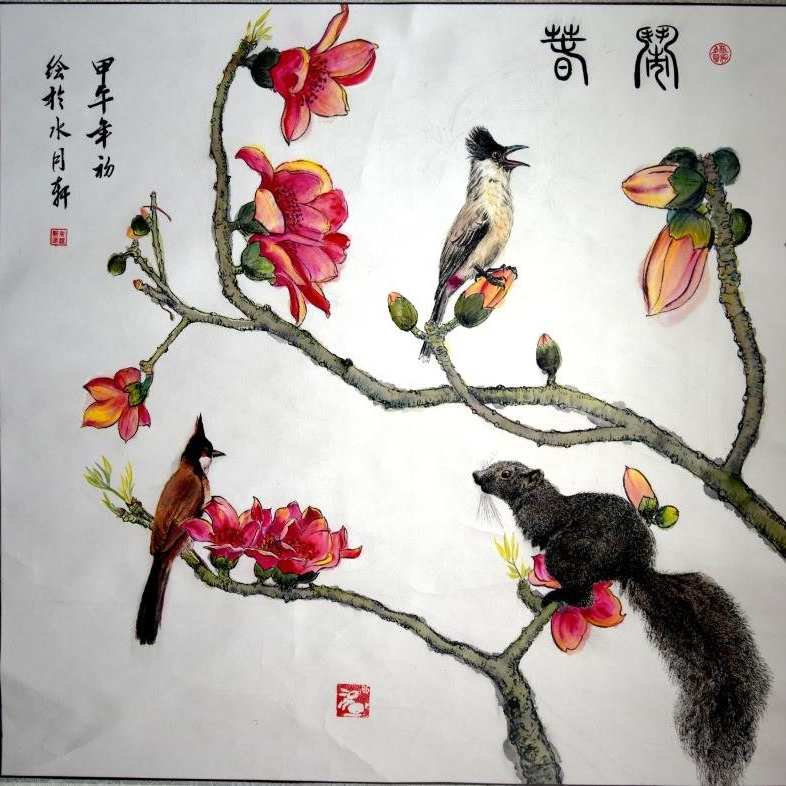 鬧春
甲午年初
绘於水月轩